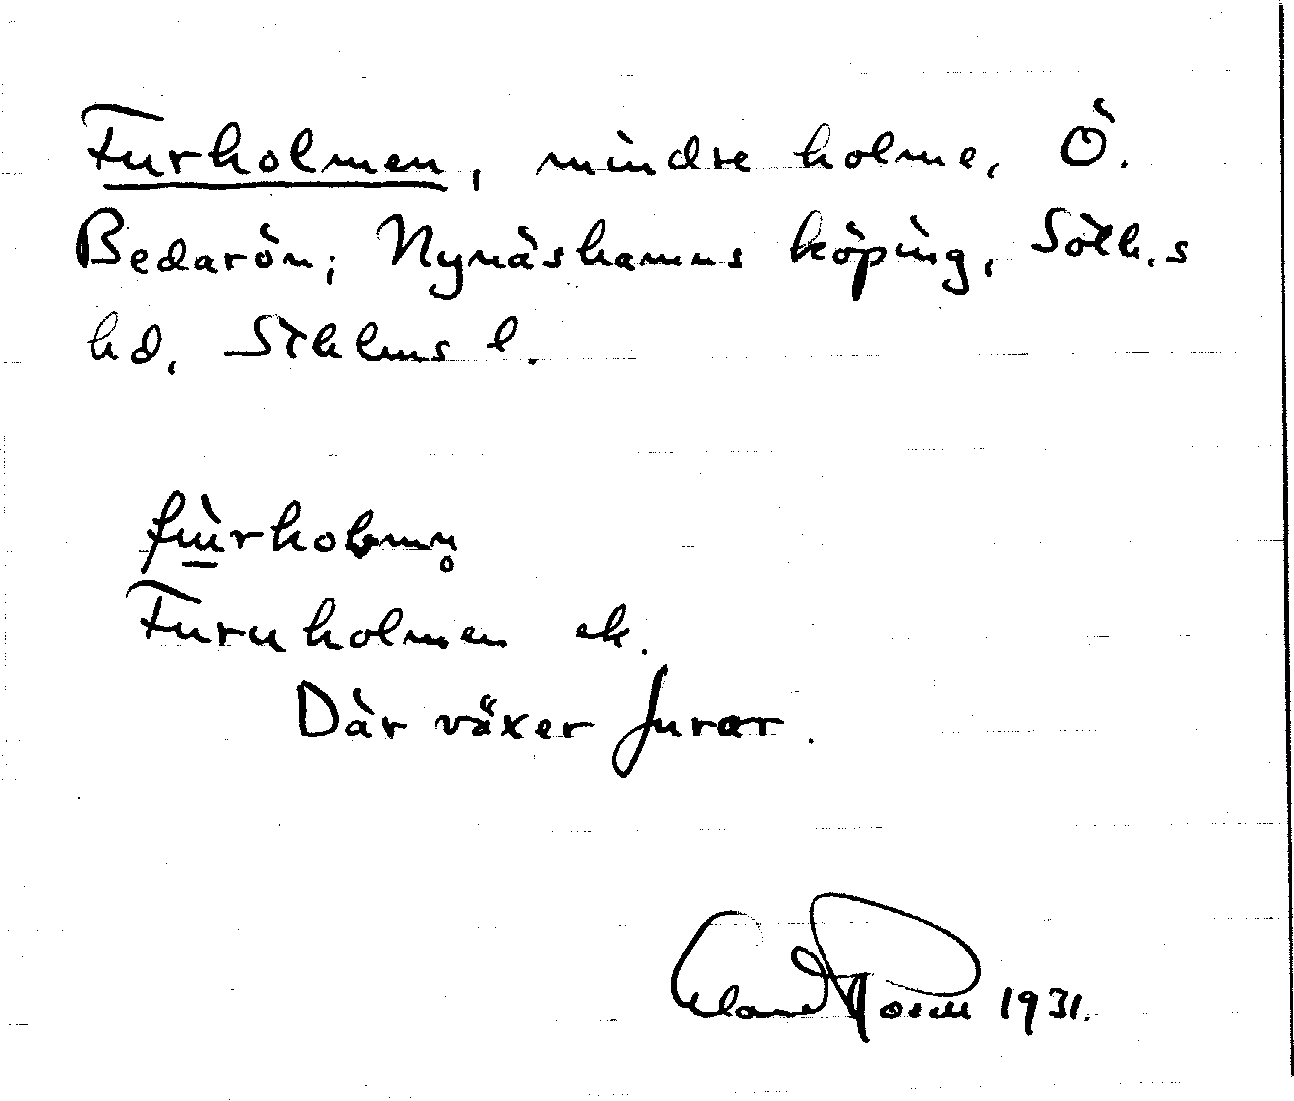 Furholmen, mindre holme, Ö.
Bedarön; Nynäshamns köping, Sötk.s
hd, Sthlms l.
furholmn̥
Furuholmen ek.
Där växer furor.
Rosell 1931.